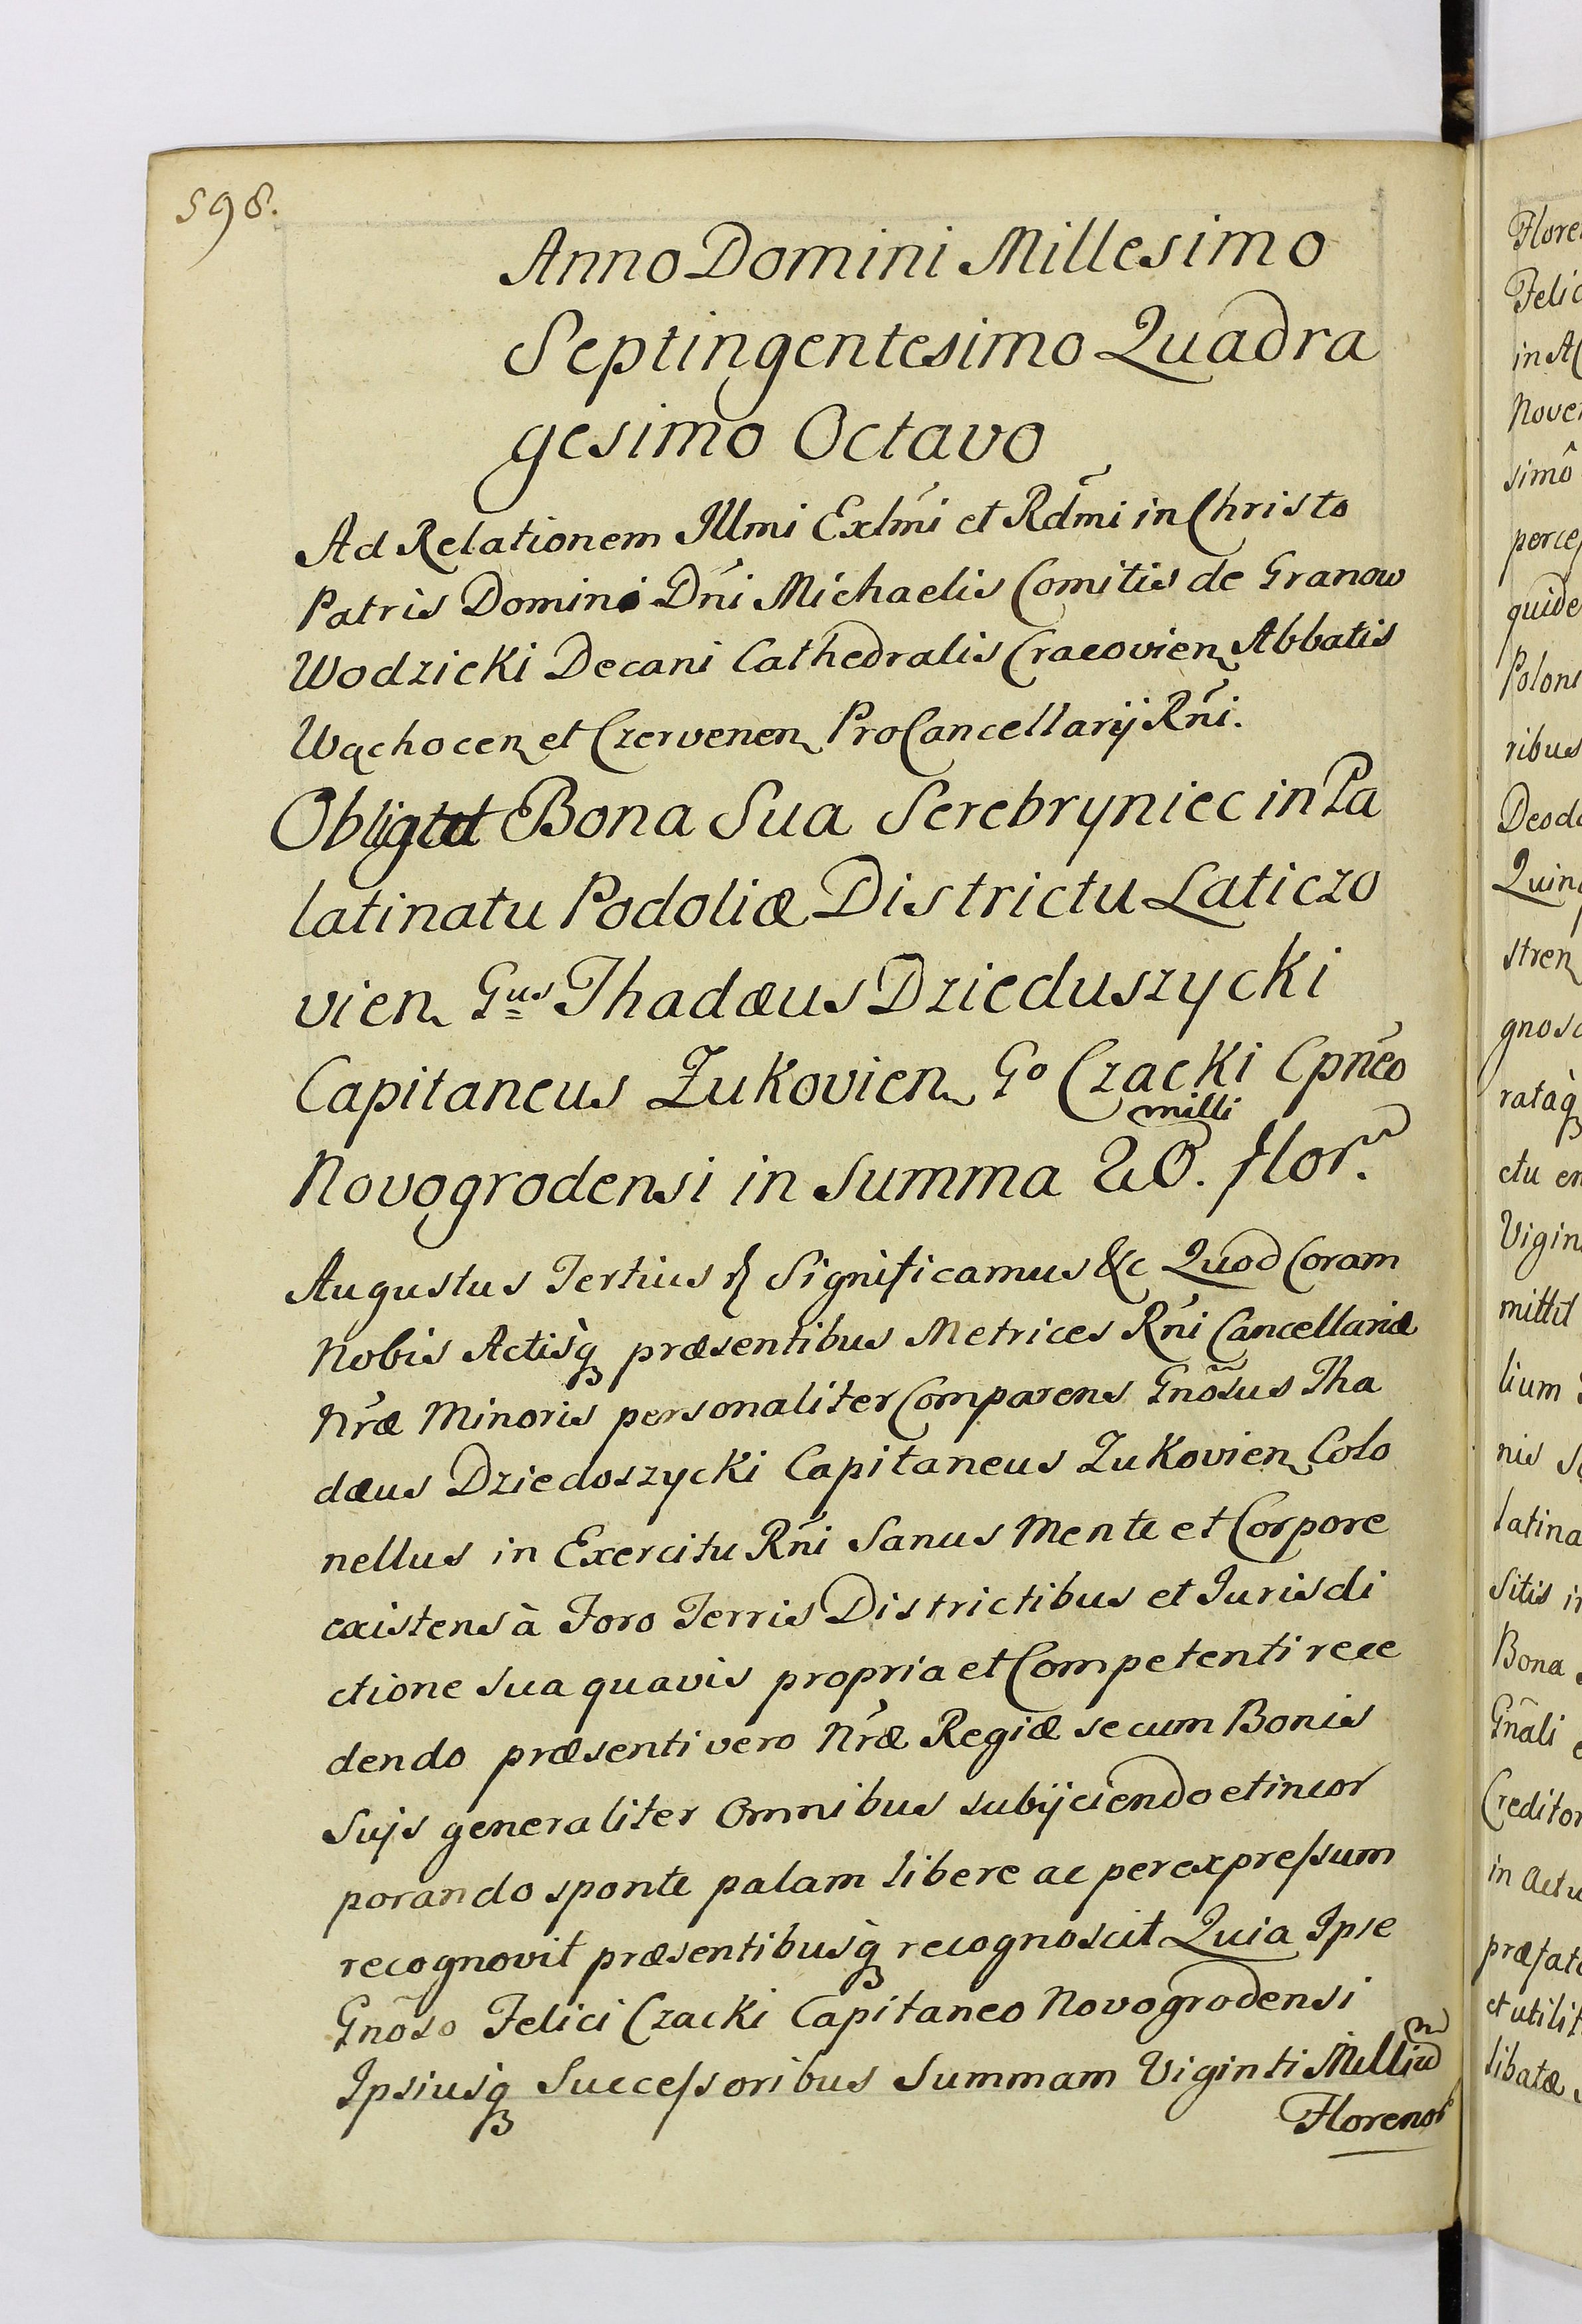 598.
Anno Domini Millesimo
Septingentesimo Quadra
gesimo Octavo
Ad Relationem Illmi Exlmi et Rdmi in Christo
Patris Domini Dni Michaelis Comitis de Granow
Wodzicki Decani Cathedralis Cracovien Abbatis
Wąchocen et Czervenen ProCancellarij Rni.
Obligat Bona Sua Serebryniec in Pa
latinatu Podoliæ Districtu Laticzo
vien Gus Thadæus Dzieduszycki
Capitaneus Zukovien Go Czacki Cpneo
milli
Novogrodensi in summa 20. flor.
Augustus Tertius Significamus &c Quod Coram
Nobis Actisq præsentibus Metrices Rni Cancellariæ
Nræ Minoris personaliter Comparens Gnosus Tha
dæus Dziedoszycki Capitaneus Zukovien Colo
nellus in Exercitu Rni Sanus Mente et Corpore
existens à Foro Terris Districtibus et Iurisdi
ctione sua quavis propria et Competenti rece
dendo præsenti vero Nræ Regiæ se cum Bonis
suijs generaliter omnibus subijciendo et incor
porando sponte palam libere ac per expressum
recognovit præsentibusq recognoscit Quia Ipse
Gnoso Felici Czacki Capitaneo Novogrodensi
Ipsiusq Successoribus Summam Viginti Milliu
Florenor
Flore
Felic
in A
Nove
simô
perce
quide
Polon
ribus
Deod
Quin
stren
gnos
rataq
ctu en
Vigin
mittit
lium
nis
latina
sitis i
Bona
Gnali
Creditor
in actu
præfat
et utilit
libatæ